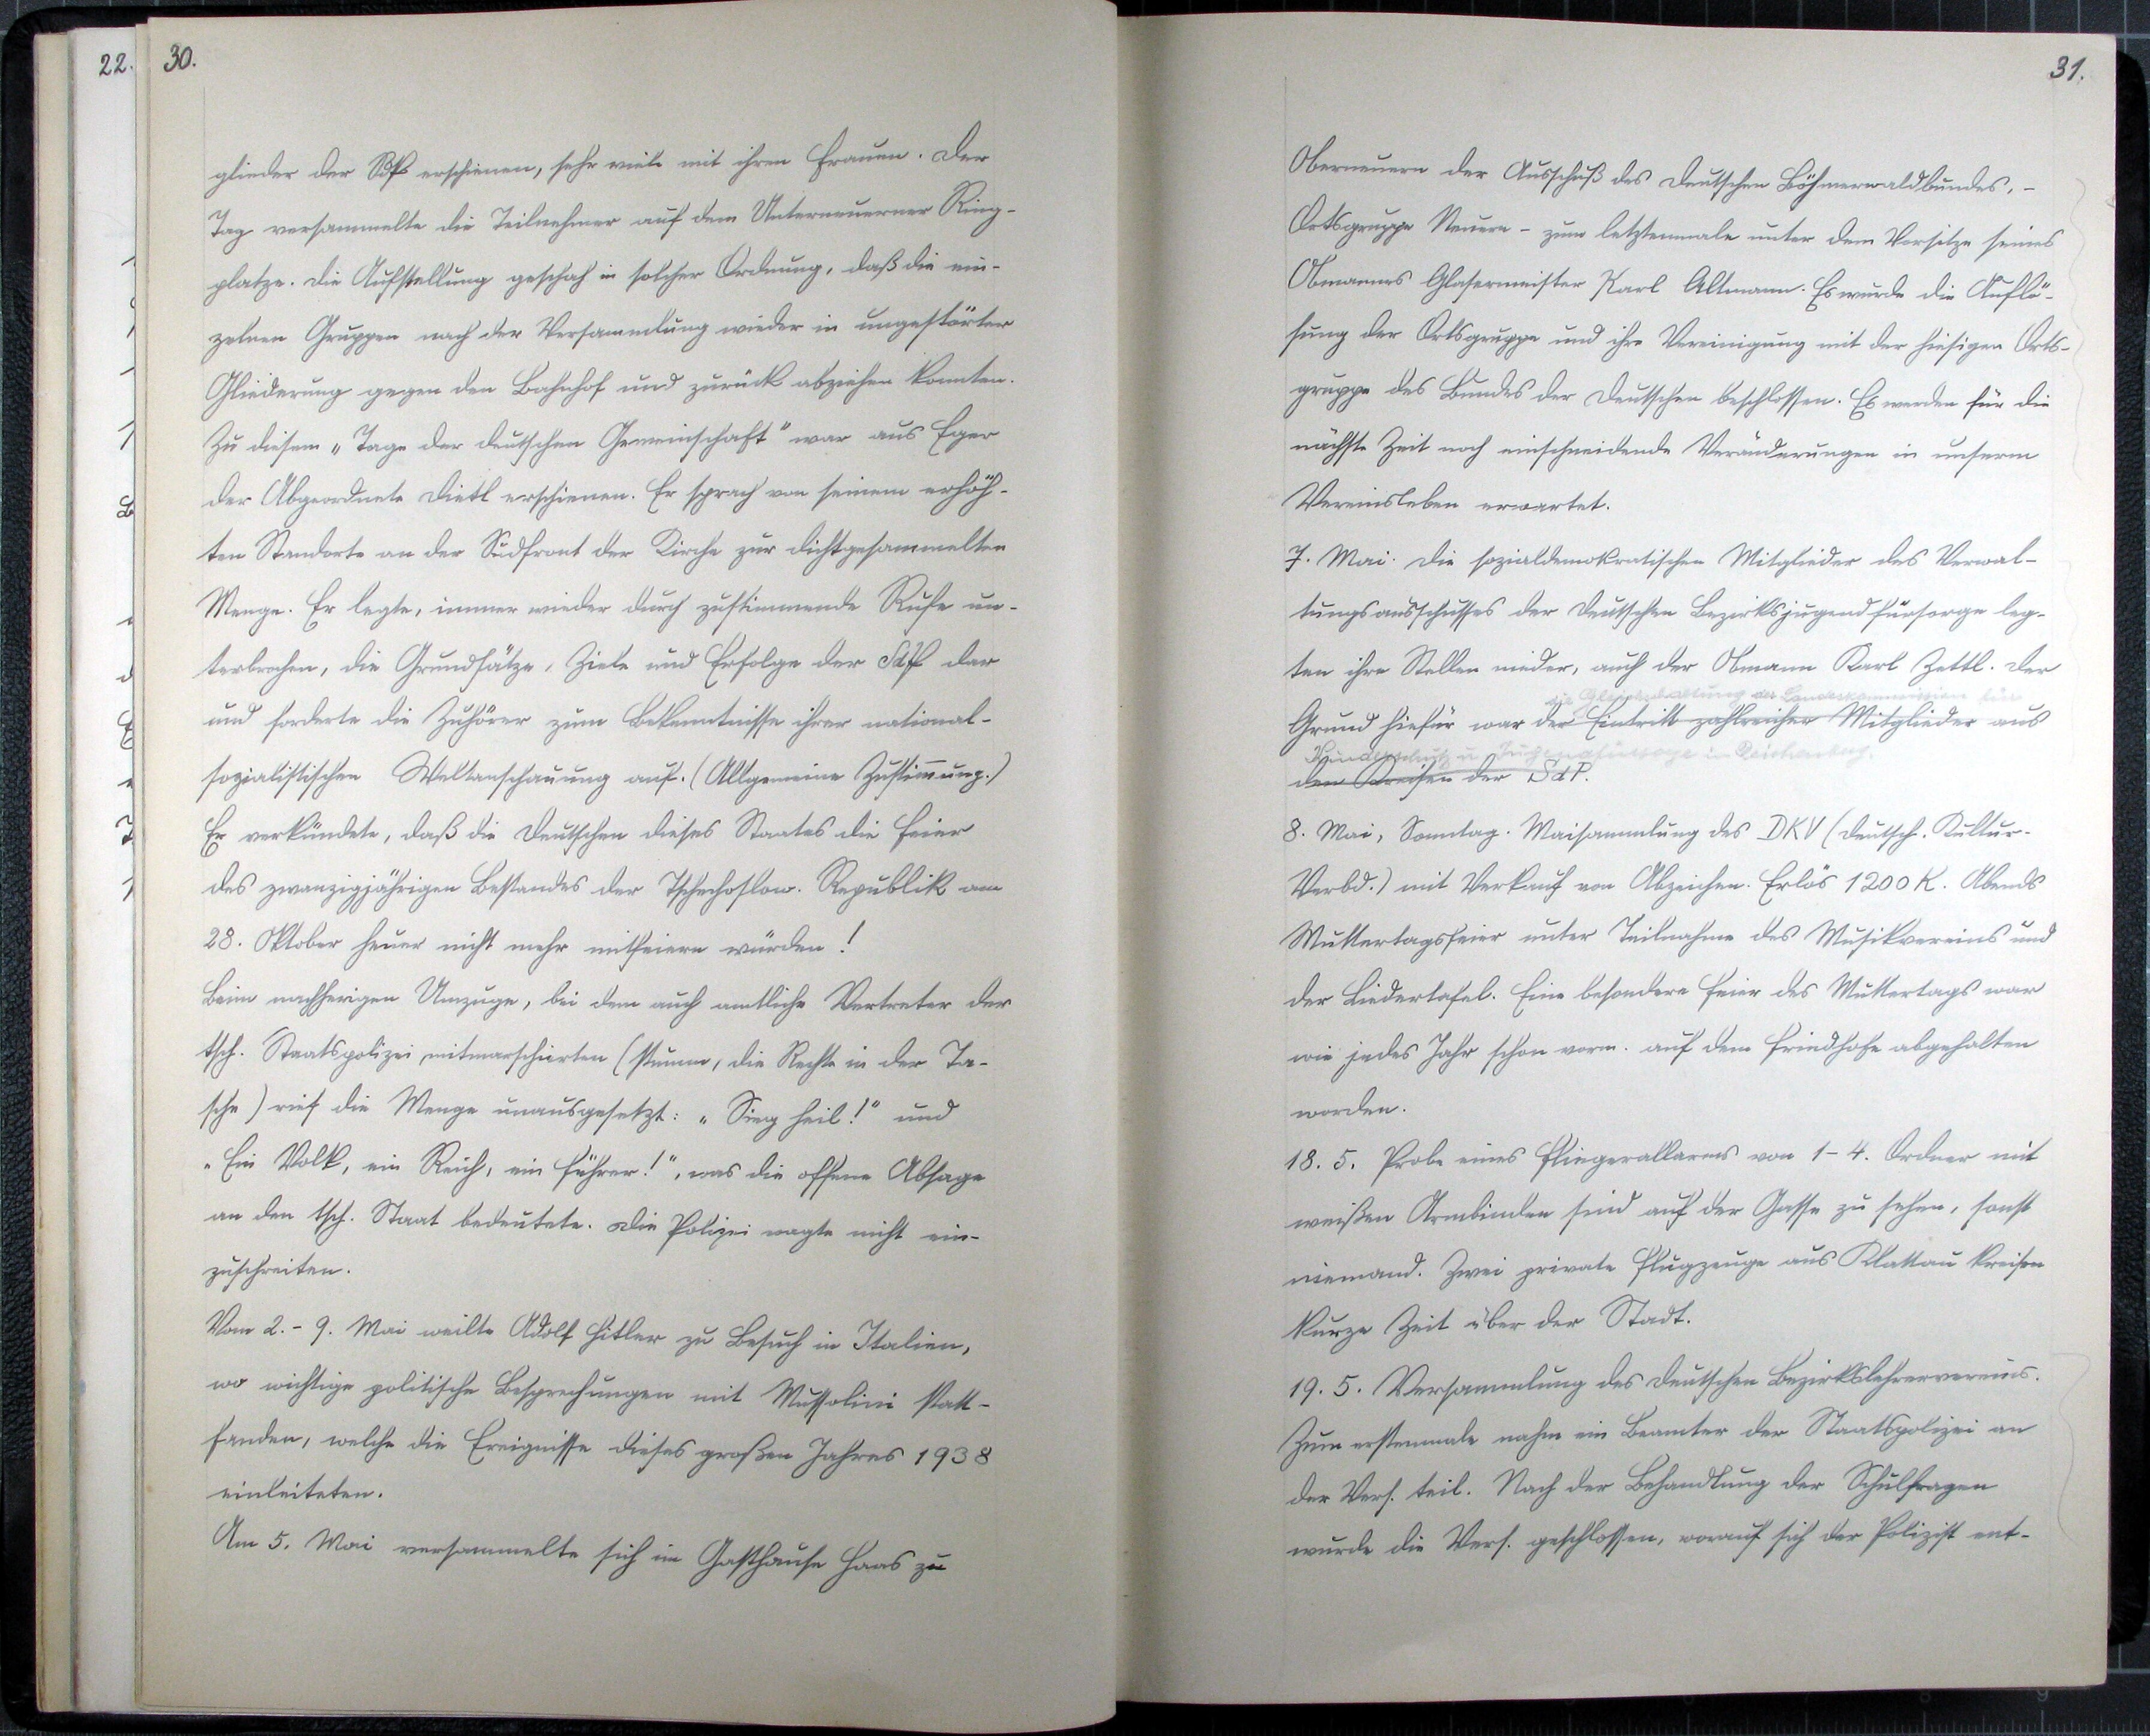 22.
30.
glieder der SdP erschienen, sehr viele mit ihren Frauen. Der
Tag versammelte die Teilnehmer auf dem Unterneuerner Ring-
platze. Die Aufstellung geschah in solcher Ordnung, daß die ein-
zelnen Gruppen nach der Versammlung wieder in ungestörter
Gliederung gegen den Bahnhof und zurück abziehen konnten.
Zu diesem „Tage der deutschen Gemeinschaft“ war aus Eger
der Abgeordnete Dietl erschienen. Er sprach von seinem erhöh-
ten Standorte an der Südfront der Kirche zur dichtgesammelten
Menge. Er legte, immer wieder durch zustimmende Rufe un-
terbrochen, die Grundsätze, Ziele und Erfolge der SdP dar
und forderte die Zuhörer zum Bekenntnisse ihrer national-
sozialistischen Weltanschauung auf. (Allgemeine Zustim̄ung.)
Er verkündete, daß die Deutschen dieses Staates die Feier
des zwanzigjährigen Bestandes der Tschechoslow. Republik am
28. Oktober heuer nicht mehr mitfeiern würden!
Beim nachherigen Umzuge, bei dem auch amtliche Vertreter der
tsch. Staatspolizei mitmarschierten (stumm, die Rechte in der Ta-
sche) rief die Menge unausgesetzt: „Sieg Heil!“ und
„Ein Volk, ein Reich, ein Führer!“, was die offene Absage
an den tsch. Staat bedeutete. Die Polizei wagte nicht ein-
zuschreiten.
Vom 2.-9. Mai weilte Adolf Hitler zu Besuch in Italien,
wo wichtige politische Besprechungen mit Mussolini statt-
fanden, welche die Ereignisse dieses großen Jahres 1938
einleiteten.
Am 5. Mai versammelte sich im Gasthause Haas zu
31.
Oberneuern der Ausschuß des Deutschen Böhmerwaldbundes, -
Ortsgruppe Neuern - zum letztenmale unter dem Vorsitze seines
Obmannes Glasermeister Karl Altmann. Es wurde die Auflö-
sung der Ortsgruppe und ihre Vereinigung mit der hiesigen Orts-
gruppe des Bundes der Deutschen beschlossen. Es werden für die
nächste Zeit noch einschneidende Veränderungen in unserm
Vereinsleben erwartet.
7. Mai. Die sozialdemokratischen Mitglieder des Verwal-
tungsausschusses der Deutschen Bezirksjugendfürsorge leg-
ten ihre Stellen nieder, auch der Obmann Karl Zettl. Der
die Gleichschaltung der Landeskommission für
Grund hiefür war der Eintritt zahlreicher Mitglieder aus
Kinderschutz u. Jugendfürsorge in Reichenberg.
den Kreisen der SdP.
8. Mai, Sonntag. Maisammlung des DKV (Deutsch. Kultur-
Verbd.) mit Verkauf von Abzeichen. Erlös 1200 K. Abends
Muttertagsfeier unter Teilnahme des Musikvereins und
der Liedertafel. Eine besondere Feier des Muttertags war
wie jedes Jahr schon vorm. auf dem Friedhofe abgehalten
worden.
18. 5. Probe eines Fliegerallarms von 1-4. Ordner mit
weißen Armbinden sind auf der Gasse zu sehen, sonst
niemand. Zwei private Flugzeuge aus Klattau kreisen
kurze Zeit über der Stadt.
19. 5. Versammlung des Deutschen Bezirkslehrervereins.
Zum erstenmale nahm ein Beamter der Staatspolizei an
der Vers. teil. Nach der Behandlung der Schulfragen
wurde die Vers. geschlossen, worauf sich der Polizist ent-